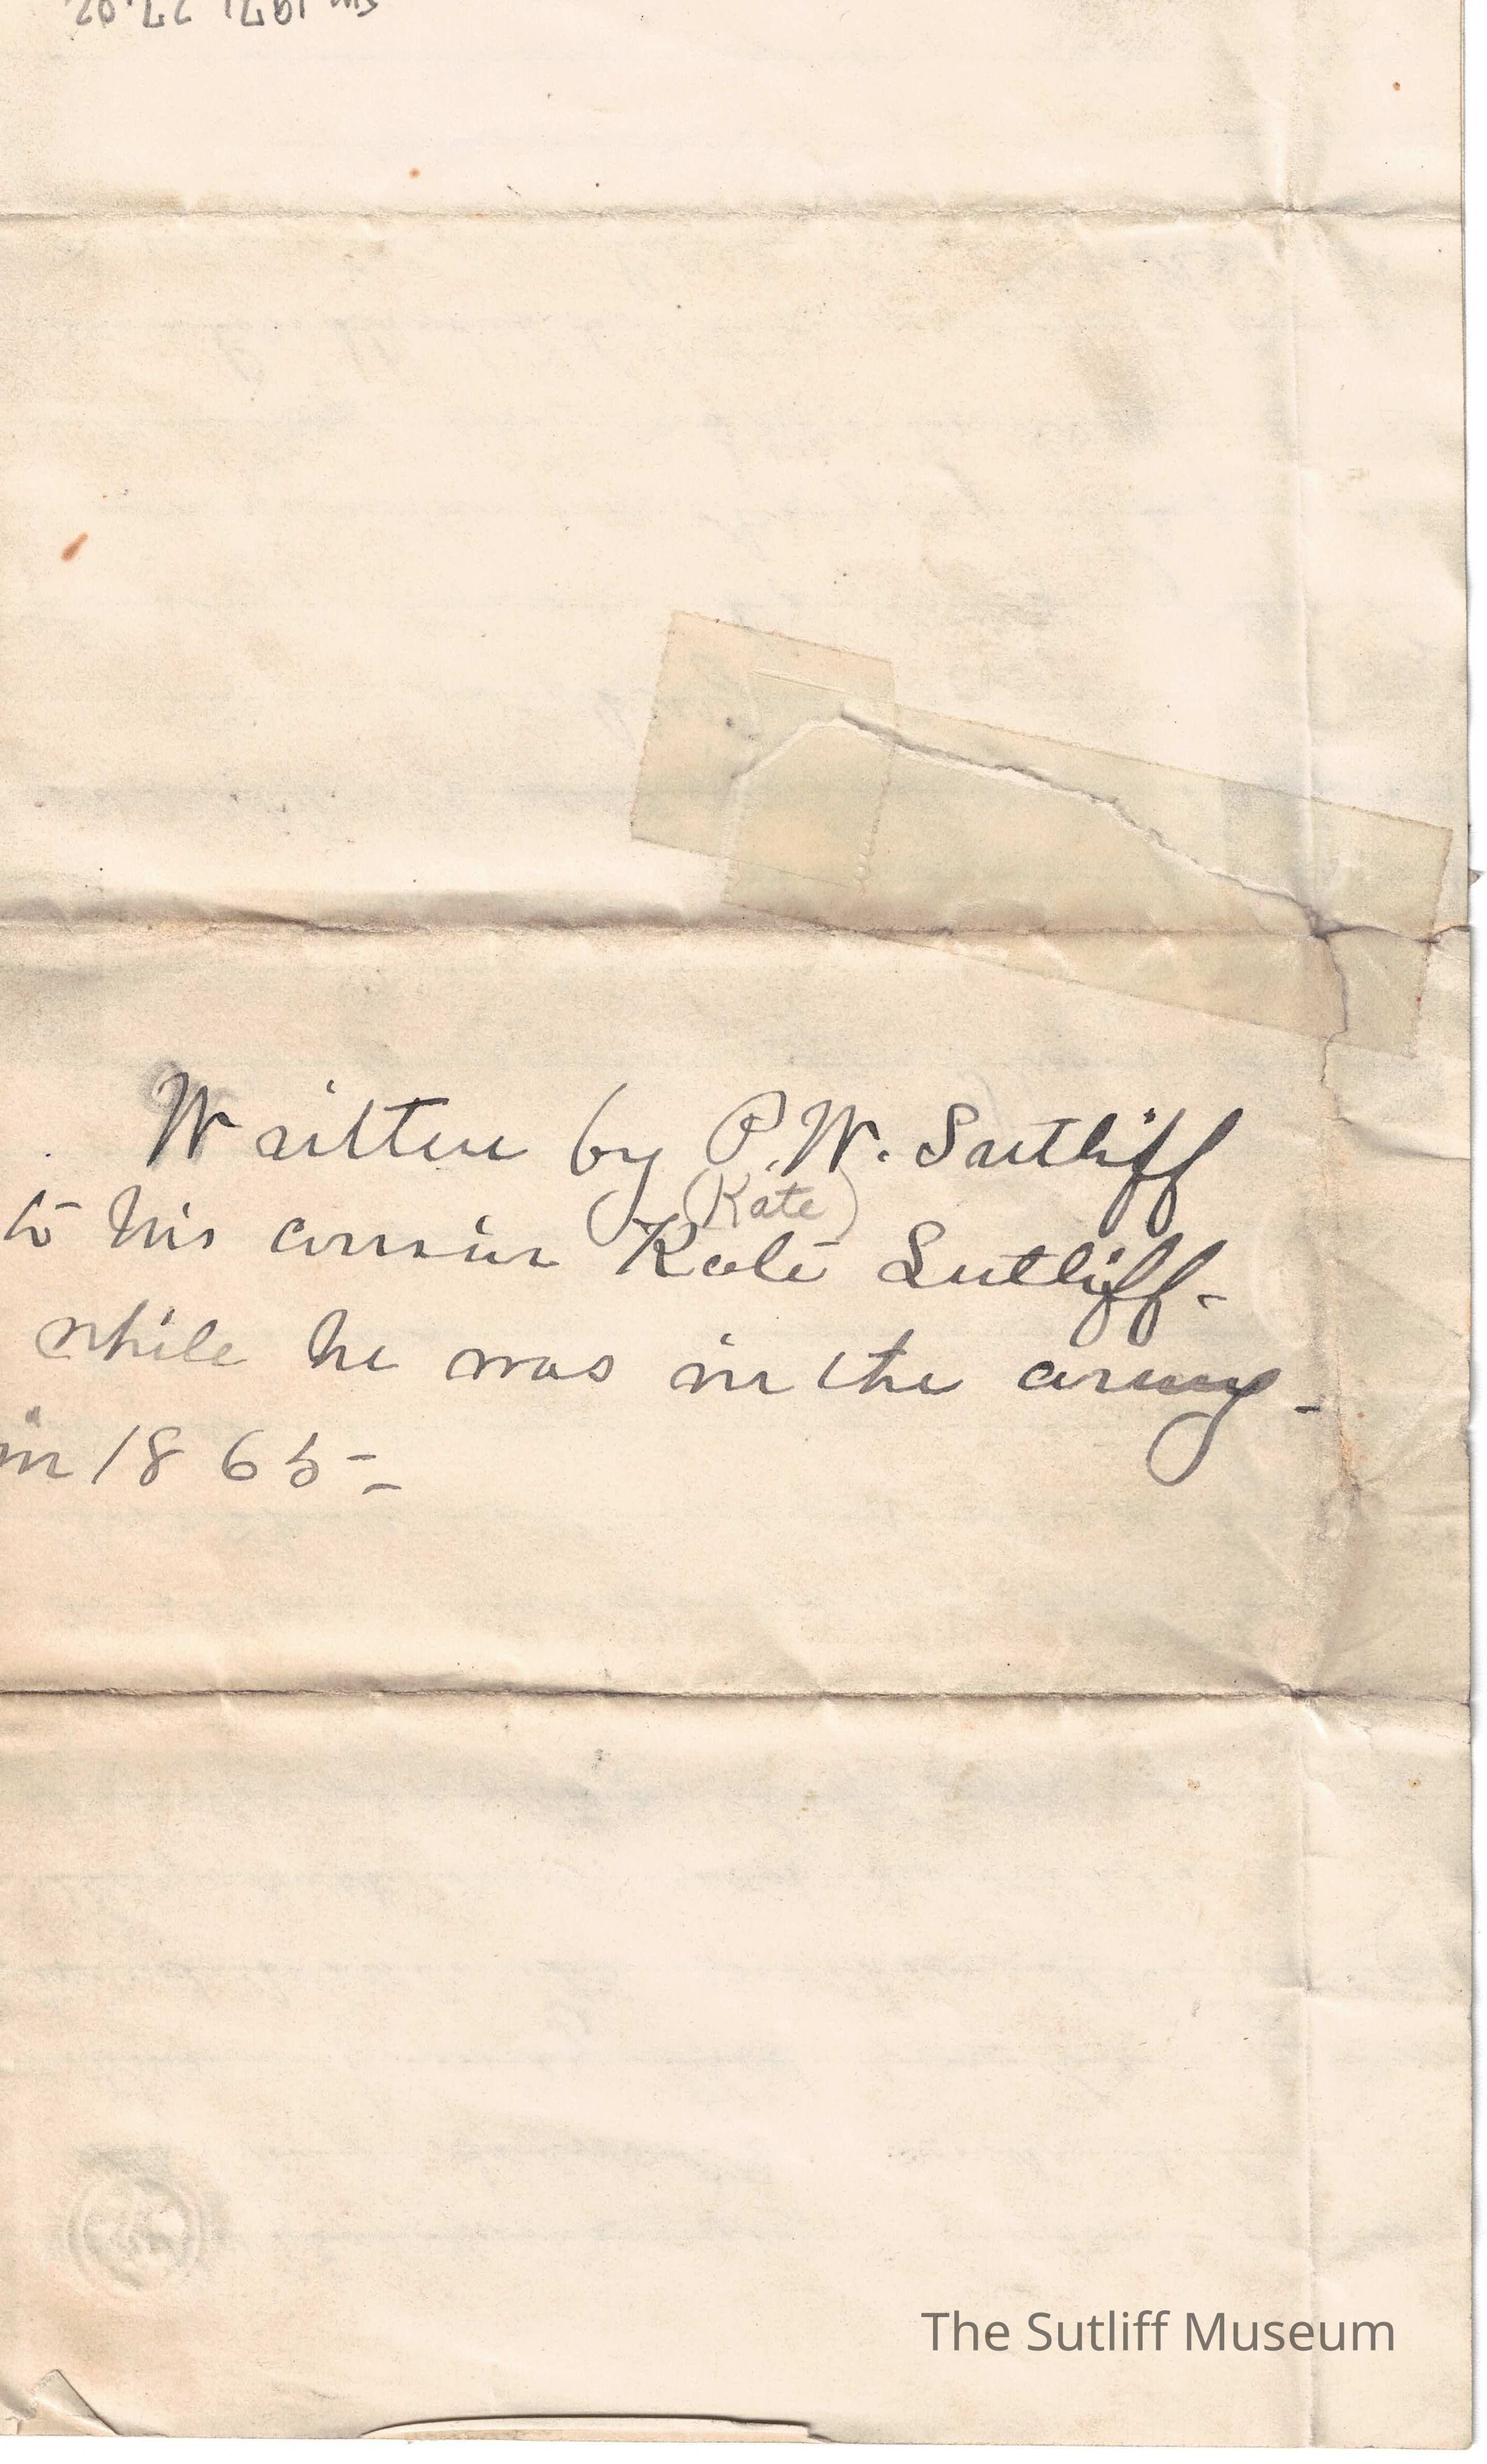 SM 1971.77.02
Written by P.W. Sutliff
(Kate)
to his cousin Kate Sutliff-
while he was in the army-
in 1865-
The Sutliff Museum